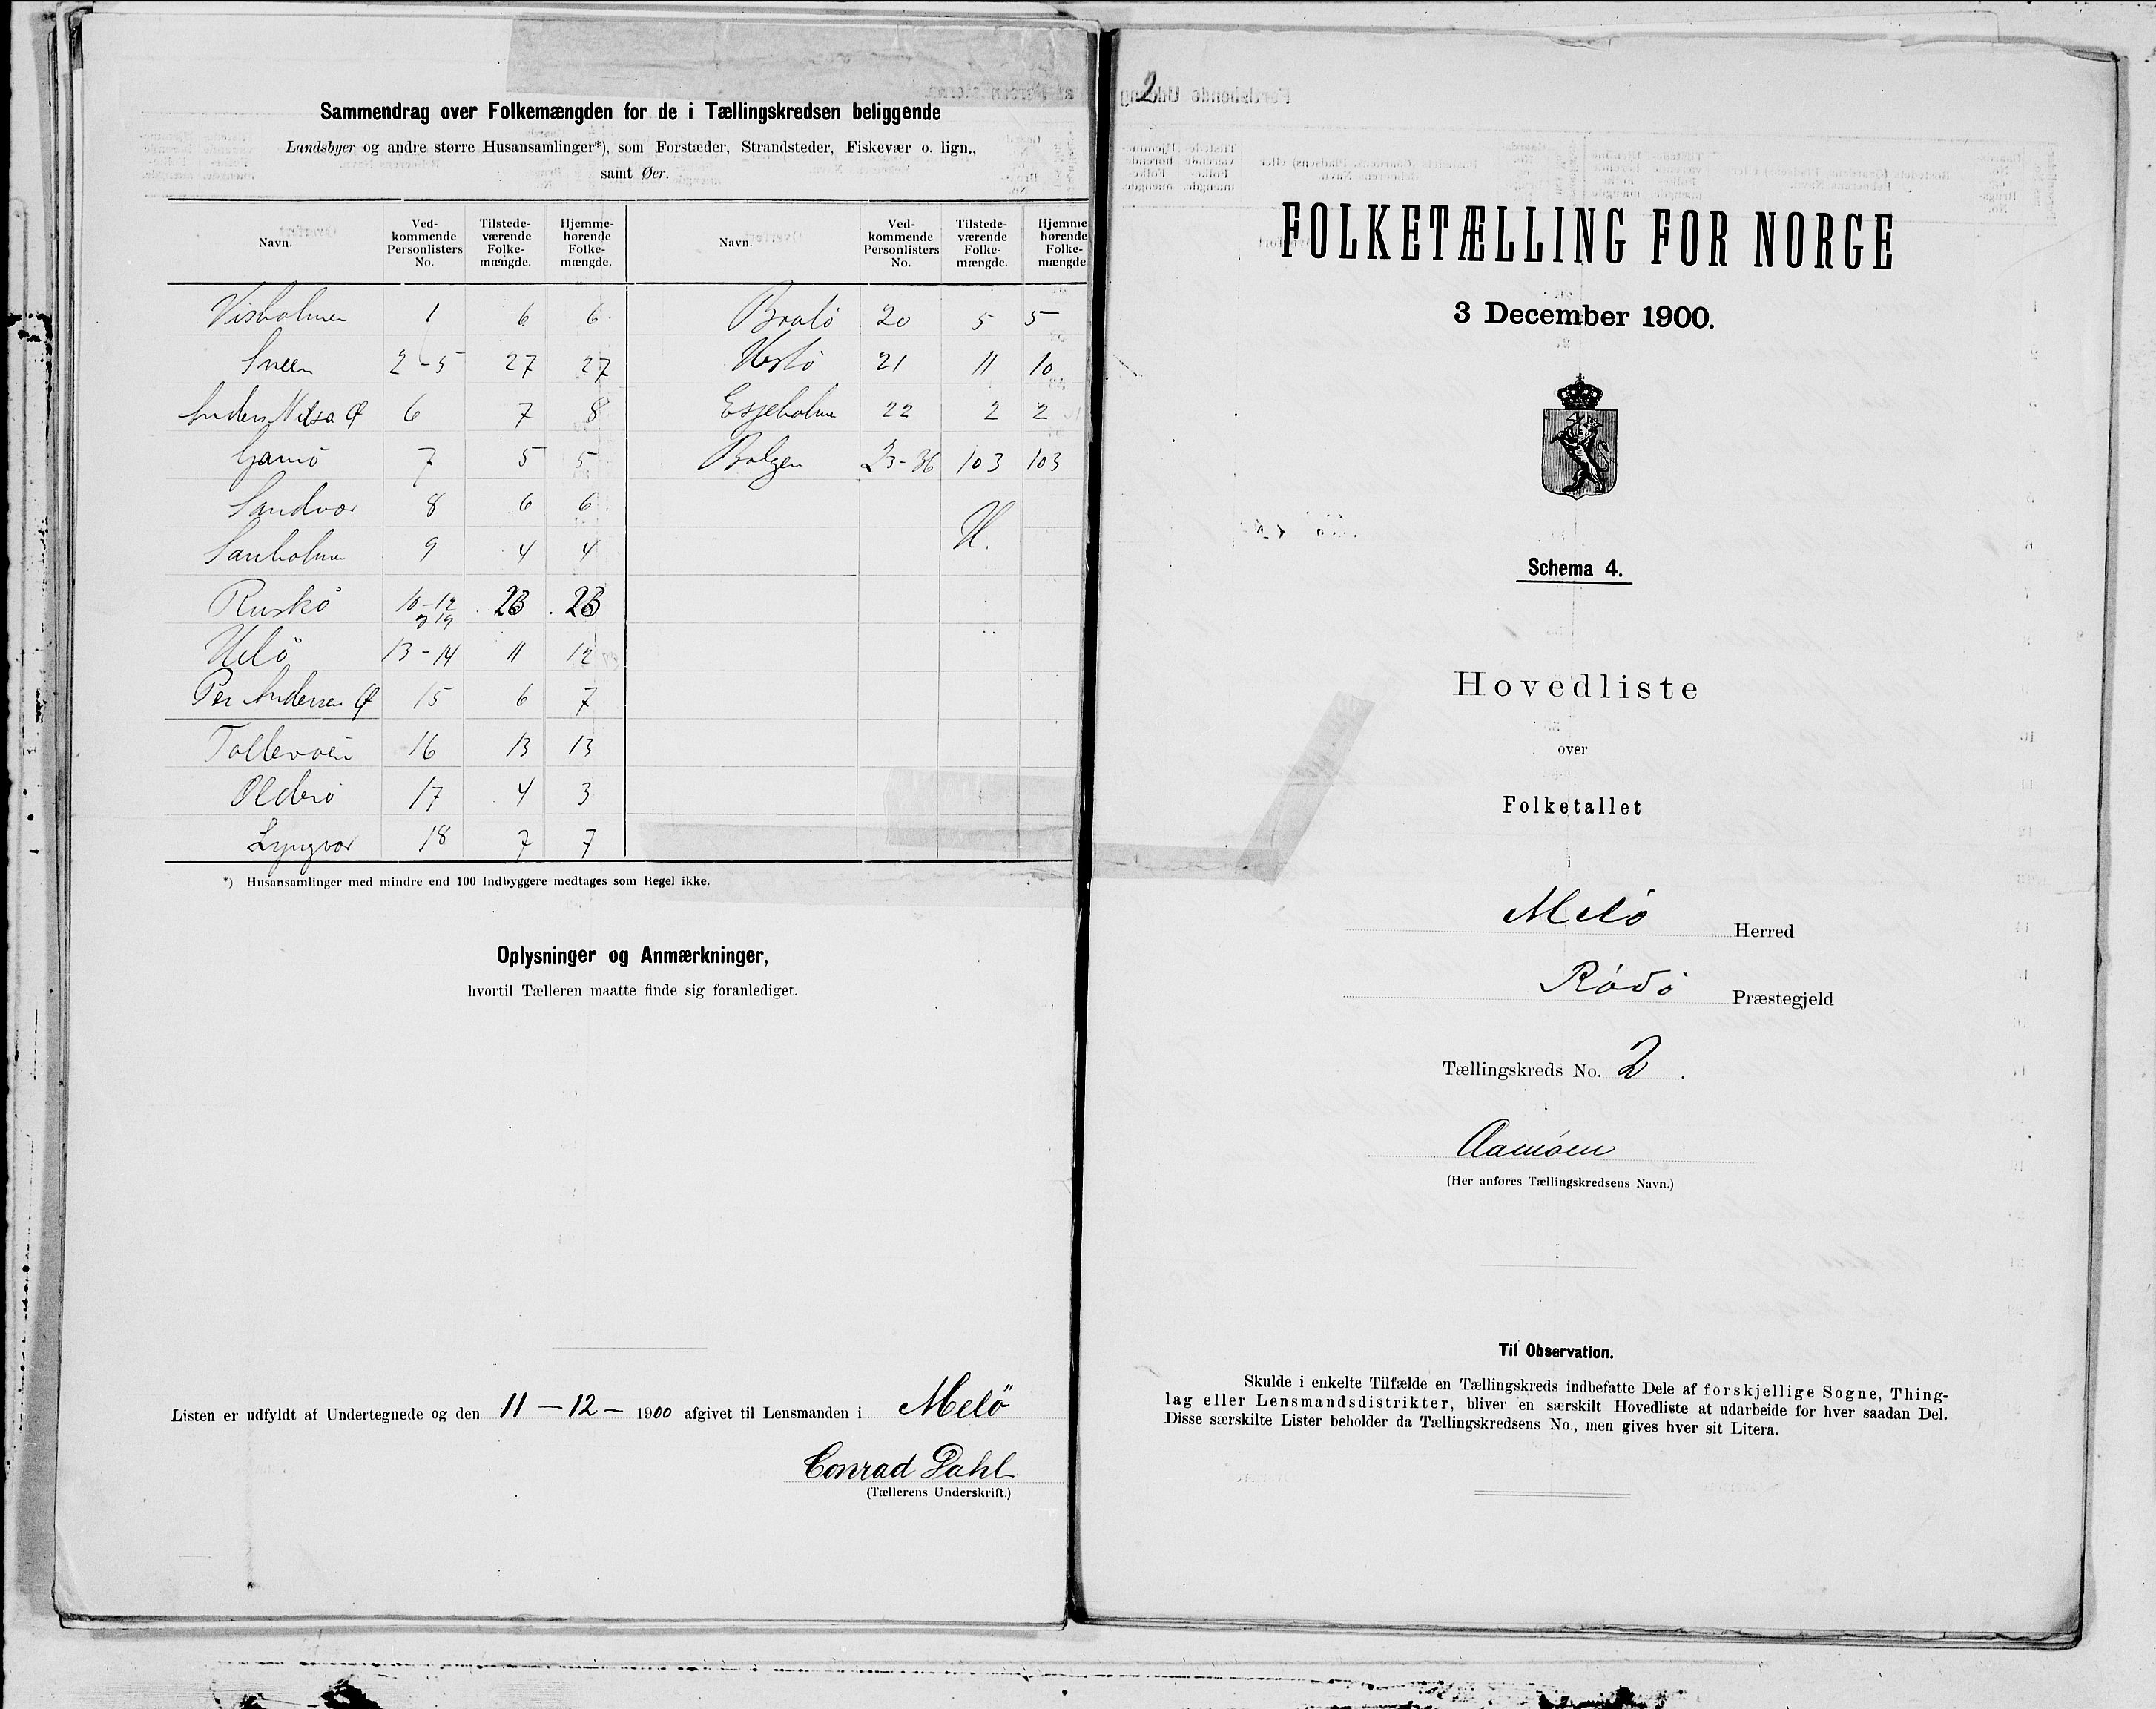 Sammendrag over Folkemængden for de i Tællingskredsen beliggende
Landsbyer og andre større Husansamlinger*), som Forstæder, Strandsteder, Fiskevær o. lign.,
samt Øer.
Navn. Ved-kommende Personlisters No. Tilstede-værende Folke-mængde. Hjemme-hørende Folke-mængde.
Visholmen 1 6 6
Sneen 2-5 27 27
Anders Nilsa Ø 6 7 8
Gjærø 7 5 5
Sandvær 8 6 6
9 4 4
Ruskø 10-12 23 23
13-14 11 12
Per Andersen Ø 15 6 7
16 13 13
Olderø 17 4 3
Lyngvær 18 7 7
Navn. Ved-kommende Personlisters No. Tilstede-værende Folke-mængde. Hjemme-hørende Folke-mængde
20 5 5
21 11 10
Esjeholm 22 2 2
Bolgen 23-36 103 103
*) Husansamlinger med mindre end 100 Indbyggere medtages som Regel ikke.
Oplysninger og Anmærkninger,
hvortil Tælleren maatte finde sig foranlediget.
Listen er udfyldt af Undertegnede og den 11 - 12 - 1900 afgivet til Lensmanden i Melö
Conrad Dahl
(Tællerens Underskrift.)
2
FOLKETÆLLING FOR NORGE
3 December 1900.
Schema 4.
Hovedliste
over
Folketallet
i
Melø Herred
Rødø Præstegjeld
Tællingskreds No. 2.
Aamøen
(Her anføres Tællingskredsens Navn.)
Til Observation.
Skulde i enkelte Tilfælde en Tællingskreds indbefatte Dele af forskjellige Sogne, Thing-
lag eller Lensmandsdistrikter, bliver en særskilt Hovedliste at udarbeide for hver saadan Del.
Disse særskilte Lister beholder da Tællingskredsens No., men gives hver sit Litera.